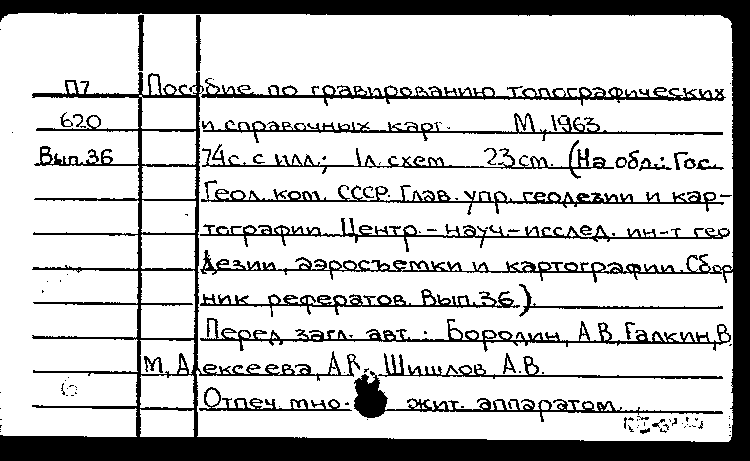 П7 Пособие по гравированию топографических
620 и справочных карт. М., 1963.
Вып.36 74с. с илл.; 1л. схем. 23см. (На обл.: Гос.
Геол. ком. СССР. Глав. упр. геодезии и кар-
тографии. Центр-науч-исслед. ин-т гео
дезии, аэросъемки и картографии. Сбор
ник рефератов. Вып.36.)
Перед загл. авт.: Бородин, А.В., Галкин, В.
М., Алексеева, А.В., Шишлов, А.В.
6 Отпеч. мно- жит. аппаратом.